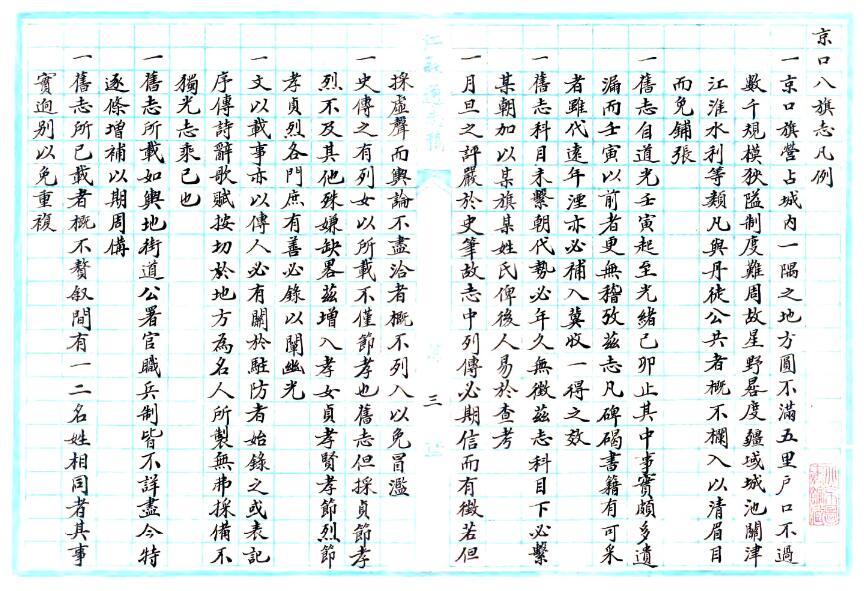 京口八旗志凡例
一京口旗營占城內一隅之地方圓不滿五里戶口不過
數千規模狹隘制度難周故星野晷度疆域城池關津
江淮水利等類凡與丹徒公共者概不闌入以清眉目
而免鋪張
一舊志自道光壬寅起至光緒己卯止其中事實頗多遺
漏而壬寅以前者更無稽攷茲志凡碑碣書籍有可采
者雖代遠年湮亦必補入冀收一得之效
一舊志科目未繫朝代勢必年久無徵茲志科目下必繫
某朝加以某旗某姓氏俾後人易於查考
一月旦之評嚴於史筆故志中列傳必期信而有徵若但
三
採虛聲而輿論不盡洽者概不列入以免冒濫
一史傳之有列女以所載不僅節孝也舊志但採貞節孝
烈不及其他殊嫌缺畧茲增入孝女貞孝賢孝節烈節
孝貞烈各門庶有善必錄以闡幽光
一文以載事亦以傳人必有關於駐防者始錄之或表記
序傳詩辭歌賦按切於地方為名人所製無弗採備不
獨光志乘已也
一舊志所載如輿地街道公署官職兵制皆不詳盡今特
逐條增補以期周備
一舊志所已載者概不贅叙間有一二名姓相同者其事
實迥別以免重複